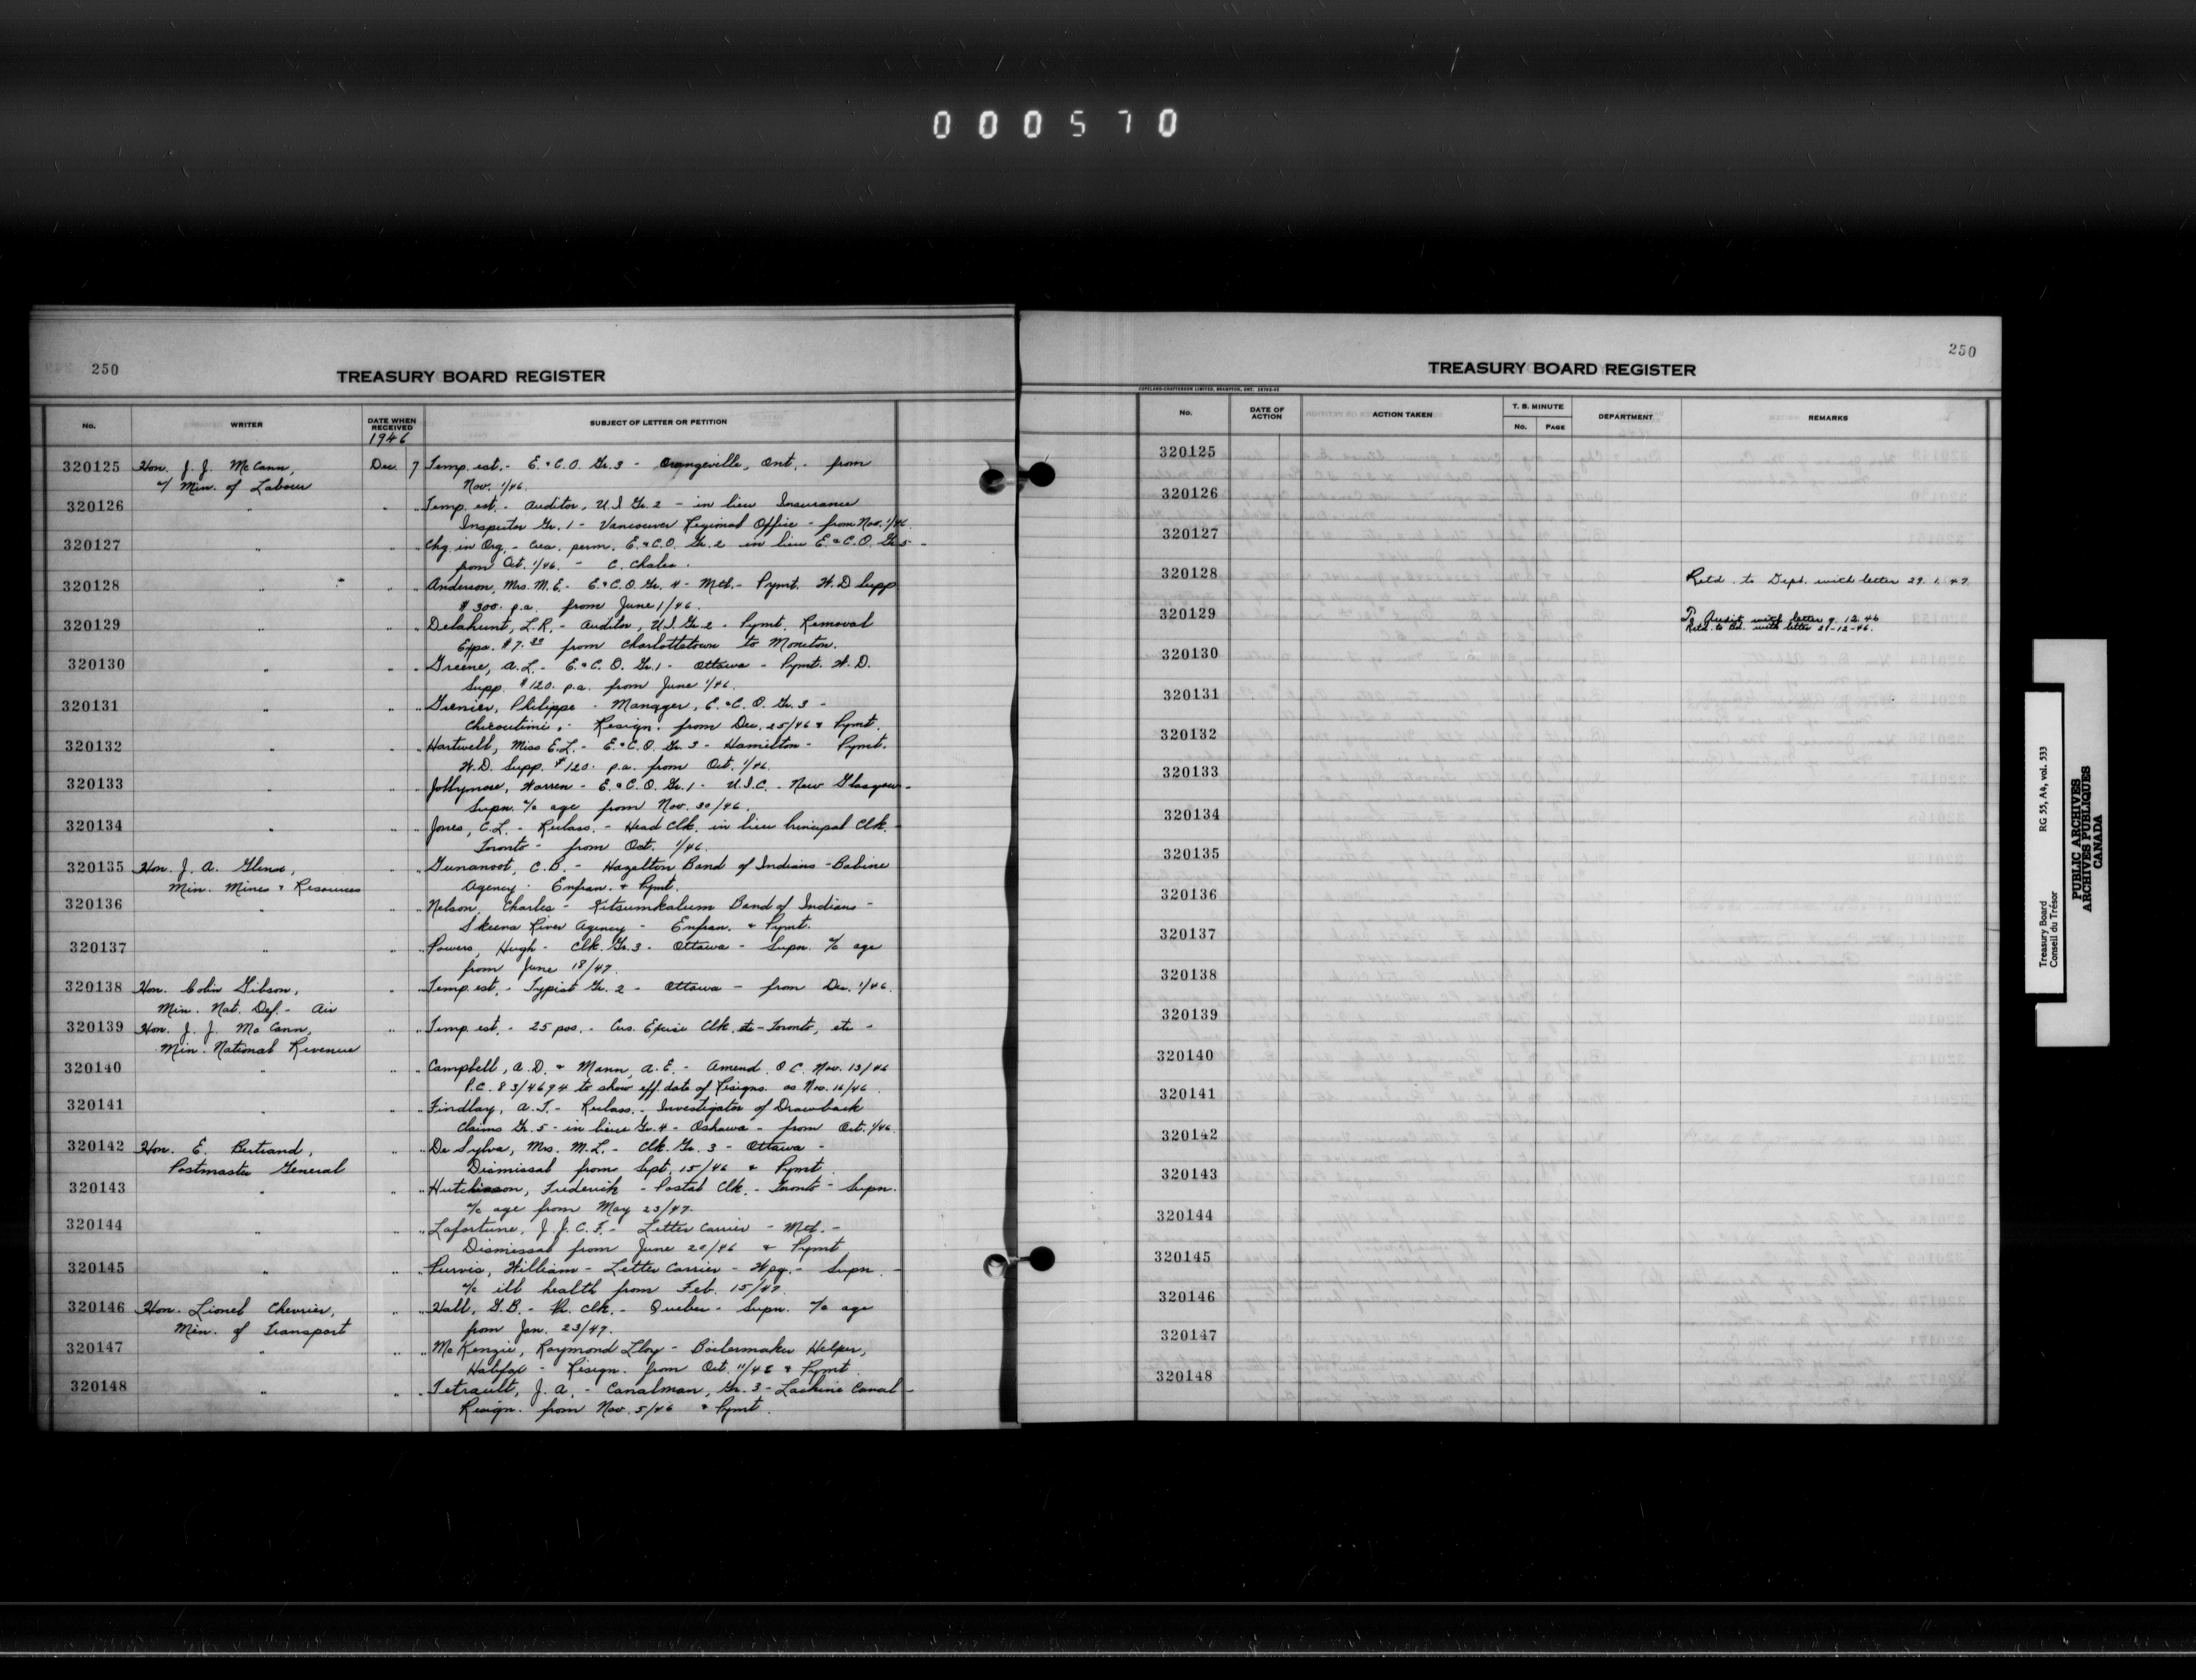 000570
250
TREASURY BOARD REGISTER
No. WRITER DATE WHEN RECEIVED SUBJECT OF LETTER OR PETITION
1946
320125 Hon. J. J. McCann, Dec. 7 Temp. est. - E. & C. O. Gr. 3 - Orangeville, Ont. - from
a/ Min. of Labour Nov. 1/46.
320126 " " " Temp. est. - Auditor, U.I Gr. 2 - in lieu Insurance
Inspector Gr. 1 - Vancouver Regional Office - from Nov. 1/46.
320127 " " " Chg. in Org. - Crea. perm. E. & C.O. Gr. 2 in lieu E. & C.O. Gr 5 -
from Oct. 1/46. - C.
320128 " " " Anderson, Mrs. M. E. - E. & C. O. Gr. 4 - Mtl. - Pymt. W. D Supp
$300. p.a. from June 1/46.
320129 " " " Delahunt, L.R. - Auditor, U I Gr. 2 - Pymt. Removal
Exps. from Charlottetown to Moncton.
320130 " " " Greene, A. L. - E. & C. O. Gr. 1 - Ottawa - Pymt. W. D.
Supp. $120. p.a. from June 1/46.
320131 " " " Grenier, Philippe - Manager, E. & C. O. Gr. 3 -
Chicoutimi, - Resign. from Dec. 25/46 & Pymt.
320132 " " " Hartwell, Miss E.L. - E. & C. O. Gr. 3 - Hamilton - Pymt.
W.D. Supp. $120. p.a. from Oct. 1/46.
320133 " " " Jollymore, Warren - E. & C. O. Gr. 1 - U.I.C. - New Glasgow -
Supn. a/c age from Nov. 30/46.
320134 " " " Jones, C. L. - Reclass. - Head Clk. in lieu Principal Clk. -
Toronto - from Oct. 1/46.
320135 Hon. J. A. Glenn, " " Gunanoot, C.B. - Hazelton Band of Indians - Babine
Min. Mines & Resources Agency - Enfran. & Pymt.
320136 " " " Nelson, Charles - Kitsumkalum Band of Indians -
Skeena River Agency - Enfran. & Pymt.
320137 " " " Powers, Hugh - Clk. Gr. 3 - Ottawa - Supn. a/c age
from June 18/47.
320138 Hon. Colin Gibson, " " Temp. est. - Typist Gr. 2 - Ottawa - from Dec. 1/46.
Min. Nat. Def. - Air
320139 Hon. J. J. McCann, " " Temp. est. - 25 pos. - Cus. Excise Clk. etc - Toronto, etc -
Min. National Revenue
320140 " " " Campbell, A. D. & Mann, A. E. - Amend. O C. Nov. 13/46
P.C. 83/4694 to show eff. date of Resigns. as Nov. 16/46.
320141 " " " Findlay, A. T. - Reclass. - Investigator of Drawback
Claims Gr. 5 - in lieu Gr. 4 - Oshawa - from Oct. 1/46.
320142 Hon. E. Bertrand, " " De Sylva, Mrs. M. L. - Clk. Gr. 3 - Ottawa -
Postmaster General Dismissal from Sept. 15/46 & Pymt.
320143 " " " Hutchison, Frederick - Postal Clk. - Toronto - Supn.
a/c age from May 23/47.
320144 " " " Lafortune, J. J. C. F. - Letter Carrier - Mtl. -
Dismissal from June 20/46 & Pymt
320145 " " " Purvis, William - Letter Carrier - Wpg. - Supn. -
a/c ill health from Feb. 15/47.
320146 Hon. Lionel Chevrier, " " Hall, G. B. - Pr. Clk. - Quebec - Supn. a/c age
Min. of Transport from Jan. 23/47.
320147 " " " McKenzie, Raymond Lloy - Boilermaker Helper,
Halifax - Resign. from Oct. 11/46 & Pymt
320148 " " " Tetrault, J. A. - Canalman, Gr. 3 - Lachine Canal -
Resign. from Nov. 5/46 & Pymt.
250
TREASURY BOARD REGISTER
COPELAND-CHATTERSON LIMITED, BRAMPTON, ONT.
No. DATE OF ACTION ACTION TAKEN T. B. MINUTE No. PAGE DEPARTMENT REMARKS
320125
320126
320127
320128 Retd. to Dept. with letter 29. 1. 47
320129 To Audit with letter 9. 12. 46
Retd. to Bd. with letter 21-12-46.
320130
320131
320132
320133
320134
320135
320136
320137
320138
320139
320140
320141
320142
320143
320144
320145
320146
320147
320148
Treasury Board RG 55, A4, vol. 533
Conseil du Trésor
PUBLIC ARCHIVES
ARCHIVES PUBLIQUES
CANADA